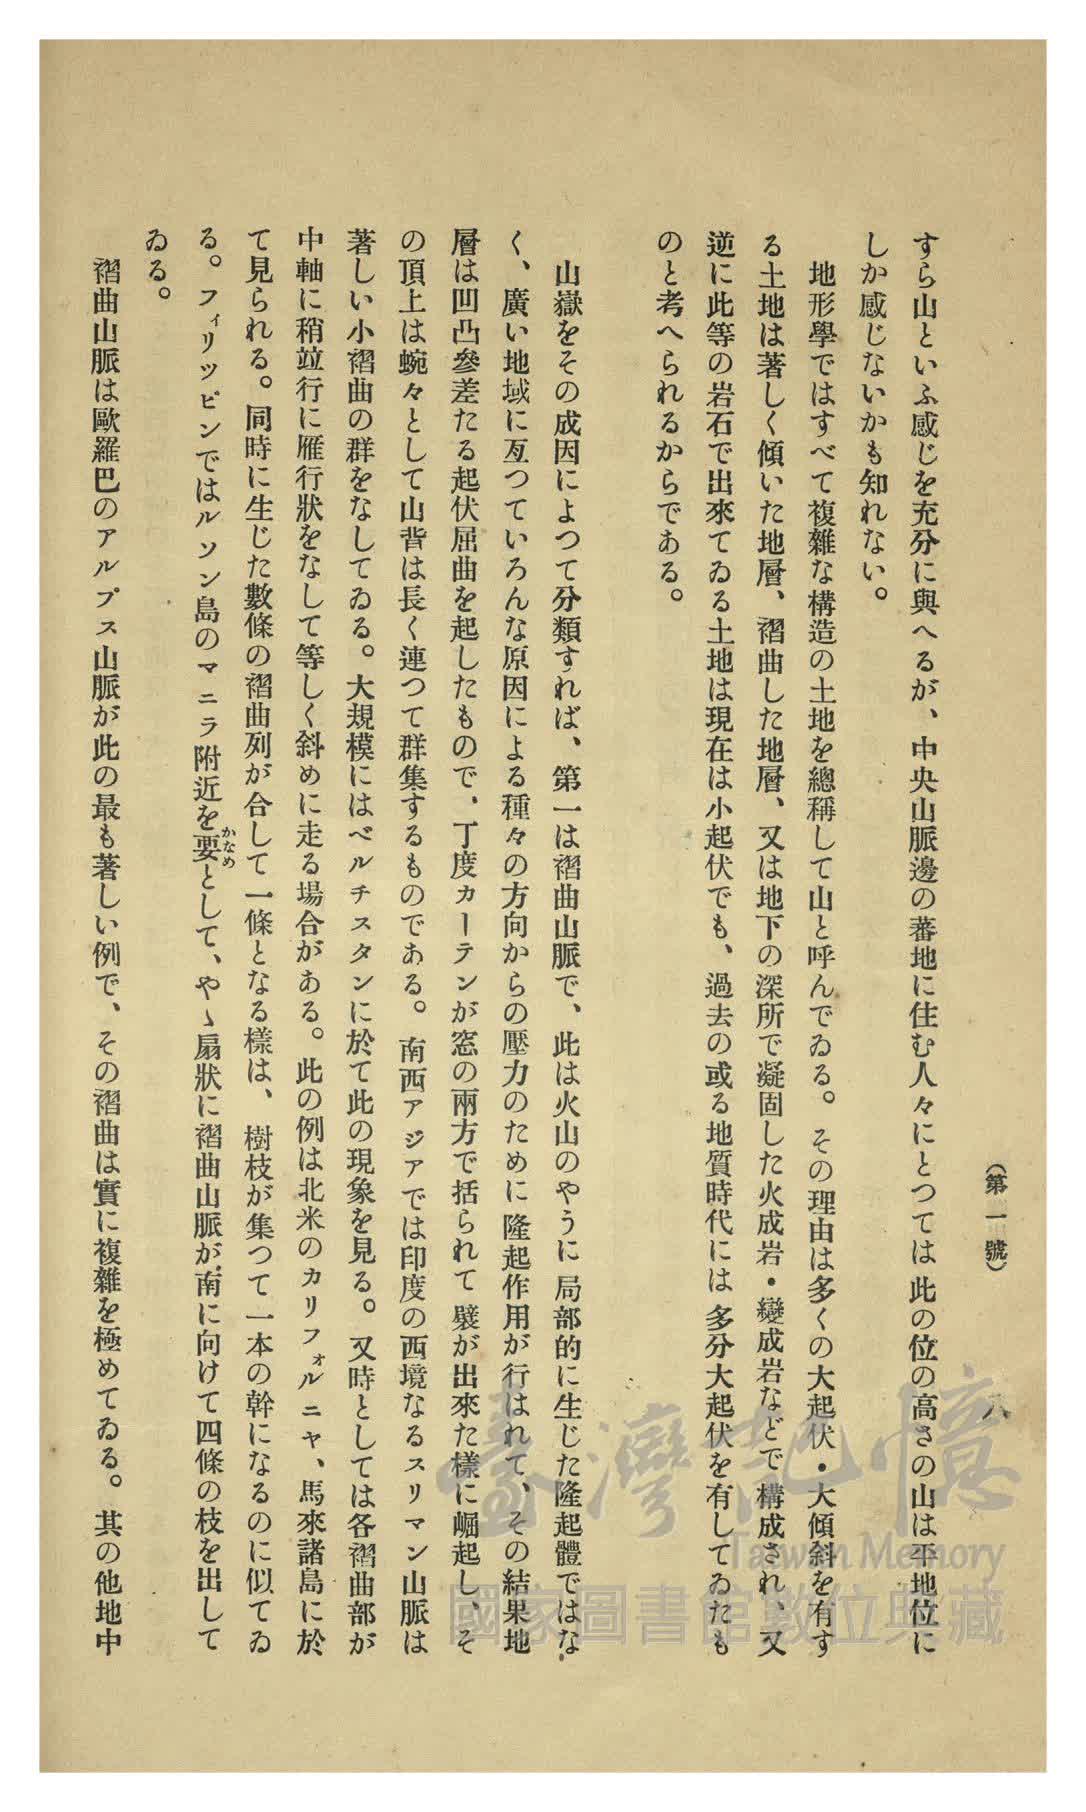 （第一號）
八
すら山といふ感じを充分に與へるが、中央山脈邊の蕃地に住む人々にとつては此の位の高さの山は平地位に
しか感じないかも知れない。
地形學ではすべて複雜な構造の土地を總稱して山と呼んでゐる。その理由は多くの大起伏・大傾斜を有す
る土地は著しく傾いた地層、褶曲した地層、又は地下の深所で凝固した火成岩・變成岩などで構成され、又
逆に此等の岩石で出來てゐる土地は現在は小起伏でも、過去の或る地質時代には多分大起伏を有してゐたも
のと考へられるからである。
山嶽をその成因によつて分類すれば、第一は褶曲山脈で、此は火山のやうに局部的に生じた隆起體ではな
く、廣い地域に亙つていろんな原因による種々の方向からの壓力のために隆起作用が行はれて、その結果地
層は凹凸參差たる起伏屈曲を起したもので、丁度カーテンが窓の兩方で括られて襞が出來た樣に崛起し、そ
の頂上は蜿々として山背は長く連つて群集するものである。南西アジアでは印度の西境なるスリマン山脈は
著しい小褶曲の群をなしてゐる。大規模にはベルチスタンに於て此の現象を見る。又時としては各褶曲部が
中軸に稍竝行に雁行狀をなして等しく斜めに走る場合がある。此の例は北米のカリフォルニヤ、馬來諸島に於
て見られる。同時に生じた數條の褶曲列が合して一條となる樣は、樹枝が集つて一本の幹になるのに似てゐ
る。フィリッピンではルソン島のマニラ附近を要かなめとして、やゝ扇狀に褶曲山脈が南に向けて四條の枝を出して
ゐる。
褶曲山脈は歐羅巴のアルプス山脈が此の最も著しい例で、その褶曲は實に複雜を極めてゐる。其の他地中
臺灣記憶
Taiwan Memory
國家圖書館數位典藏